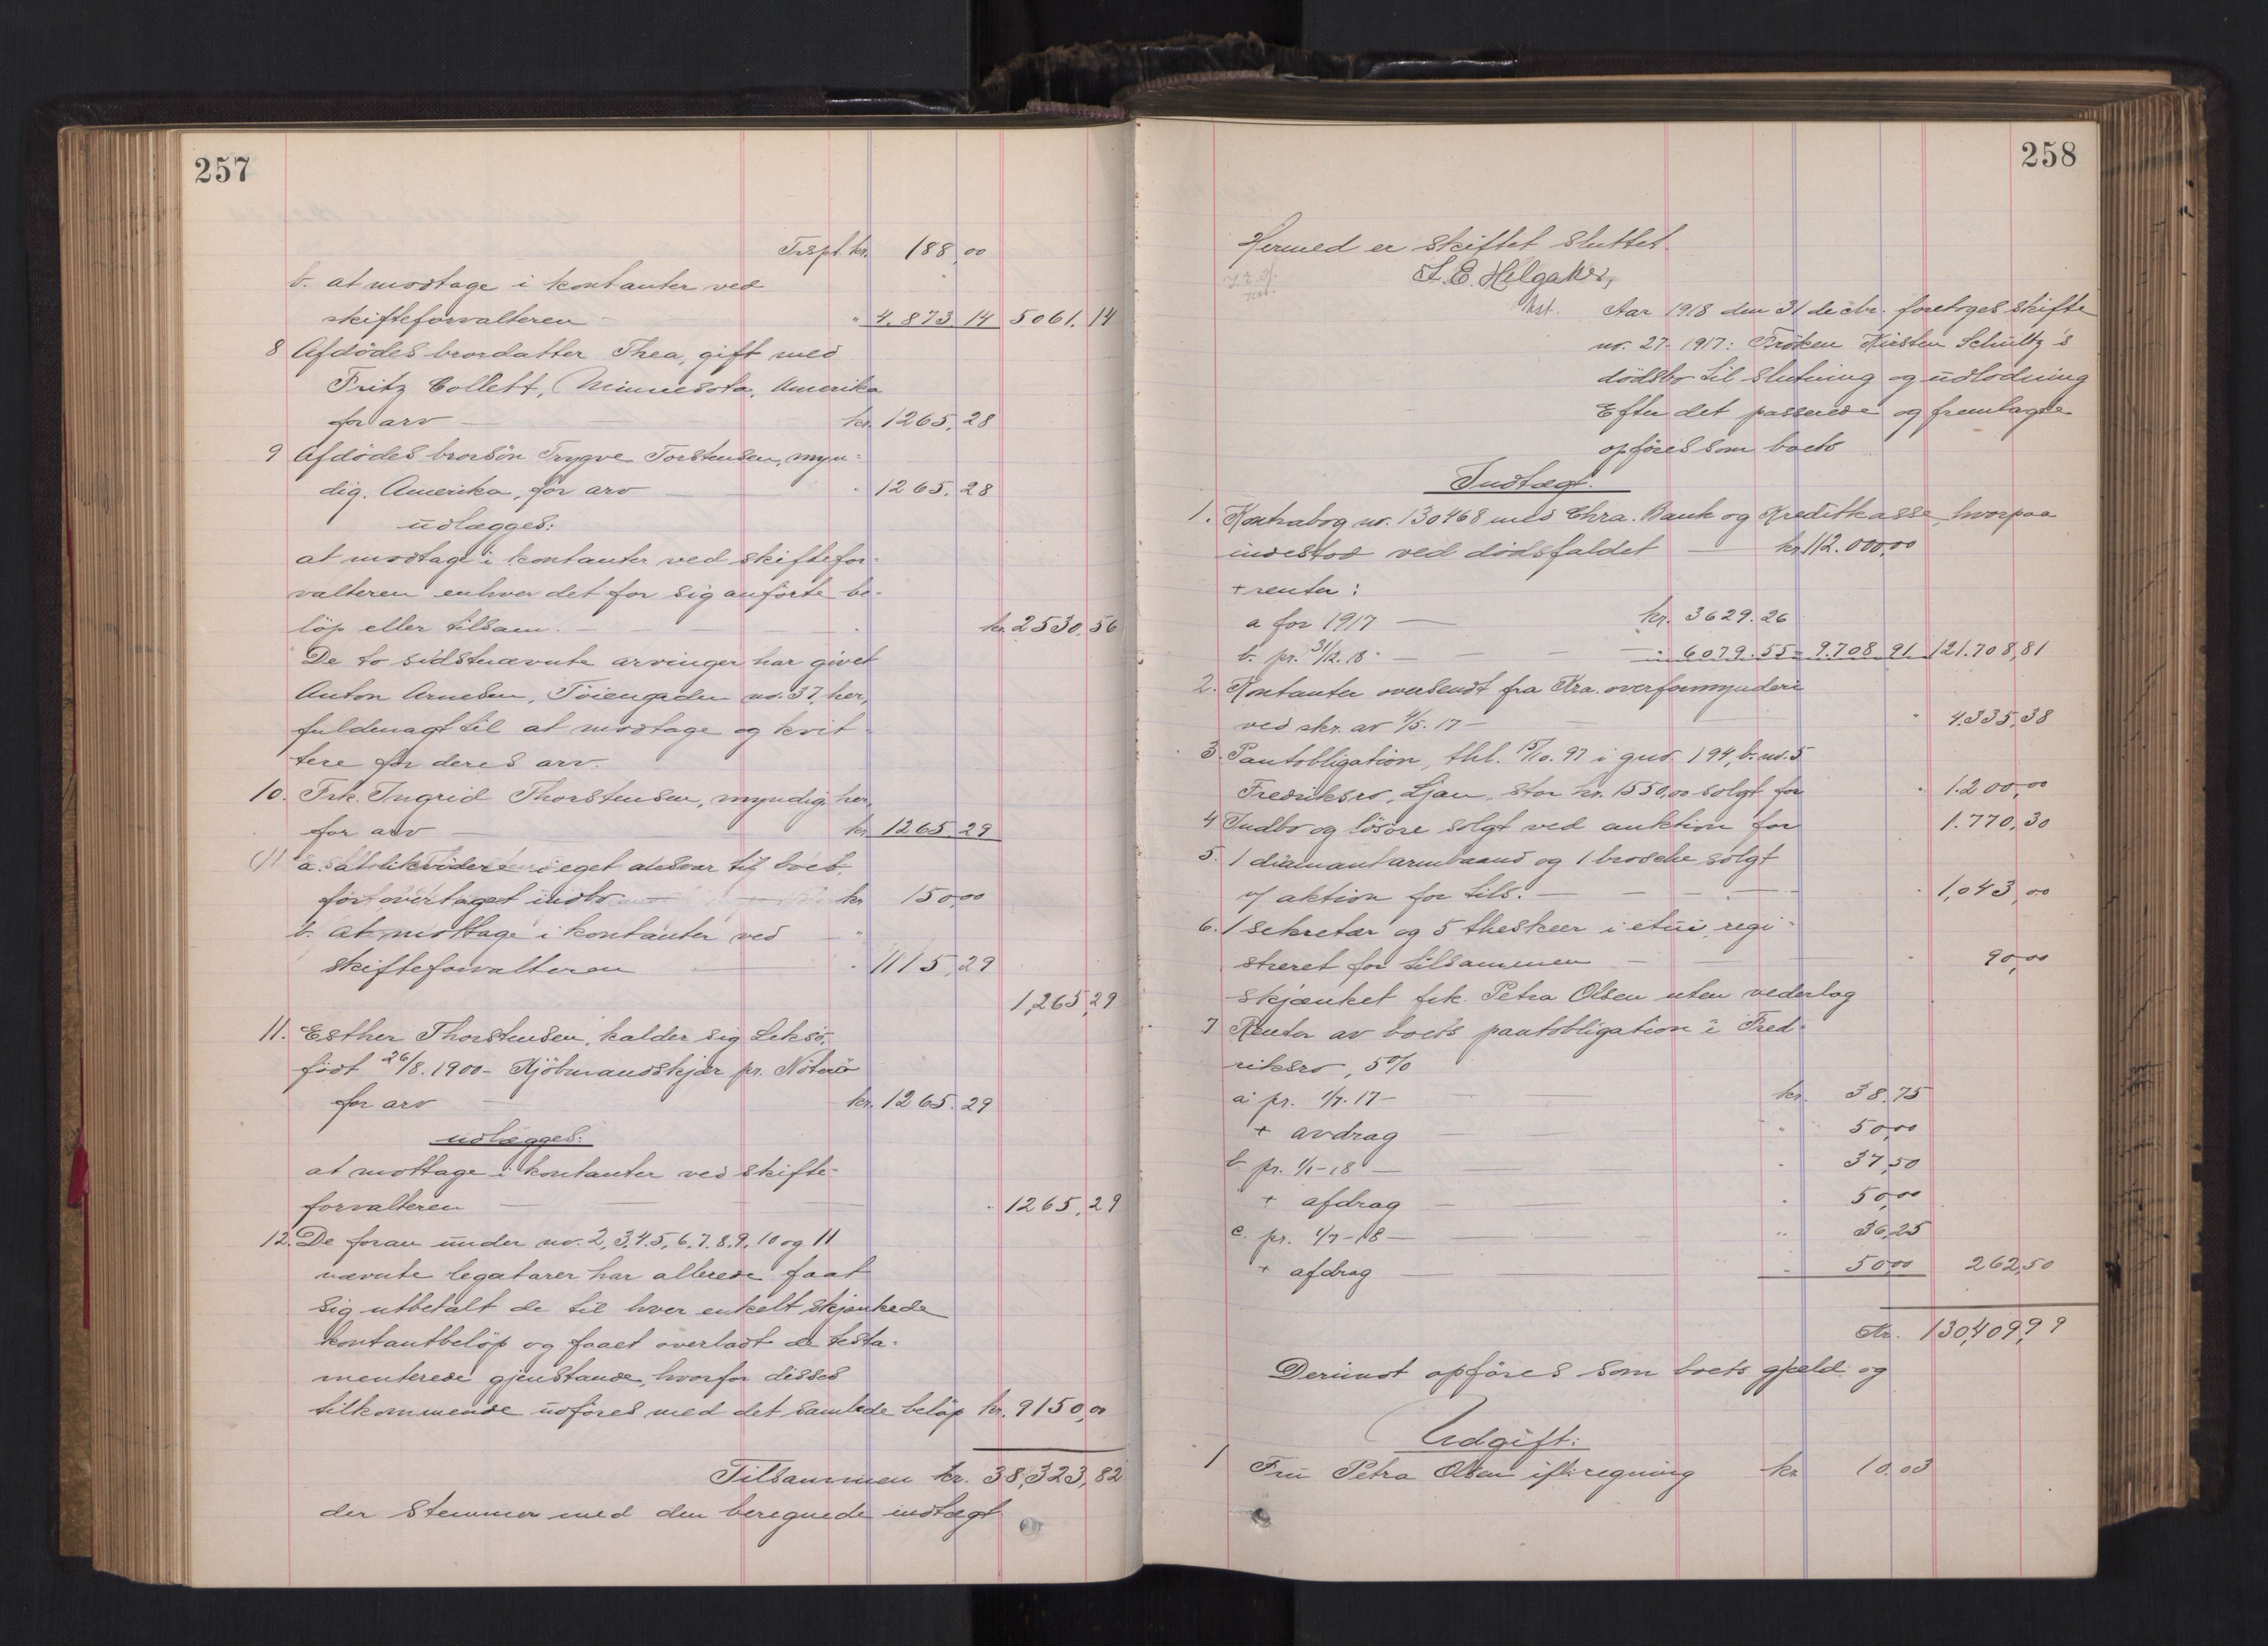 257
Trspt. kr. 188,00
b. at modtage i kontanter ved
skifteforvalteren " 4.873 14 5061.14
8 Afdödes brordatter Thea, gift med
Fritz Collett, Minnesota, Amerika
for arv kr. 1265,28
9 Afdödes brorsön Trygve Torstensen, myn-
dig, Amerika, for arv " 1265,28
udlægges:
at modtage i kontanter ved skiftefor-
valteren enhver det for sig anförte be-
löp eller tilsam. kr. 2530,56
De to sidstnævnte arvinger har givet
Anton Arnesen, Töiengaden no. 37, her,
fuldmagt til at modtage og kvit-
tere for deres arv.
10. Frk. Ingrid Thorstensen, myndig, her,
for arv kr. 1265.29
a. at likvidere i eget ansvar til boet
for overtaget indbo kr 150,00
b. at mottage i kontanter ved
skifteforvalteren " 1115,29
1,265,29
11. Esther Thorstensen, kalder sig Leksö,
født 26/8.1900 - Kjöbmandskjær pr. Nöterö
for arv kr. 1265.29
udlægges:
at mottage i kontanter ved skifte-
forvalteren " 1265,29
12. De foran under no. 2, 3, 4, 5, 6, 7, 8, 9, 10 og 11
nævnte legatarer har allerede faat
sig utbetalt de til hver enkelt skjænkede
kontantbelöp og faaet overladt de testa-
menterede gjenstande, hvorfor disses
tilkommende udföres med det samlede belöp kr. 9150,00
Tilsammen kr. 38,323,82
der stemmer med den beregnede indtægt
258
Hermed er skiftet sluttet.
L. E. Helgaker,
kst.
Aar 1918 den 31 decbr. foretoges skifte
no. 27-1917: Fröken Kirsten Schultz's
dödsbo til slutning og udlodning
Efter det passerede og fremlagte
opföres som boets
Indtægt.
1. Kontrabog no. 130468 med Chra. Bank og Kreditkasse, hvorpaa
indestod ved dödsfaldet kr. 112.000,00
+ renter:
a for 1917 kr. 3629.26
b. pr. 31/12.18 " 6079.55 = 9.708 91 121.708,81
2. Kontanter oversendt fra Kra. overformynderi
ved skr. av 4/5.17 " 4.335,38
3. Pantobligation, thl. 15/10.97 i gno. 194, b. no. 5
Fredriksro, Ljan, stor kr. 1550,00 solgt for " 1.200,00
4 Indbo og lösöre solgt ved auktion for 1.770,30
5. 1 diamantarmbaand og 1 brosche solgt
v/ aktion for tils. " 1,043,00
6. 1 sekretær og 5 theskeer i etui, regi-
streret for tilsammen " 90,00
skjænket frk. Petra Olsen uten vederlag
7 Renter av boets pantobligation i Fred-
riksro, 5%
a pr. 1/7.17 - kr. 38.75
+ avdrag " 50,00
b pr. 1/1-18 " 37,50
+ afdrag " 50,00
c. pr. 1/7-18 " 36,25
+ afdrag " 50,00 262,50
Kr. 130,409,99
Derimot opföres som boets gjeld og
Udgift:
1 Fru Petra Olsen ifl. regning kr 10.03